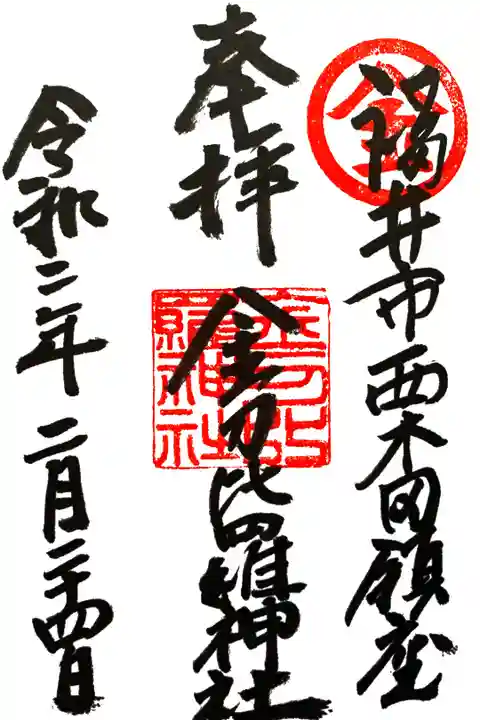 金
福井市西木田鎮座
奉拝
金刀比
羅神社
金刀比羅神社
令和二年二月二十四日